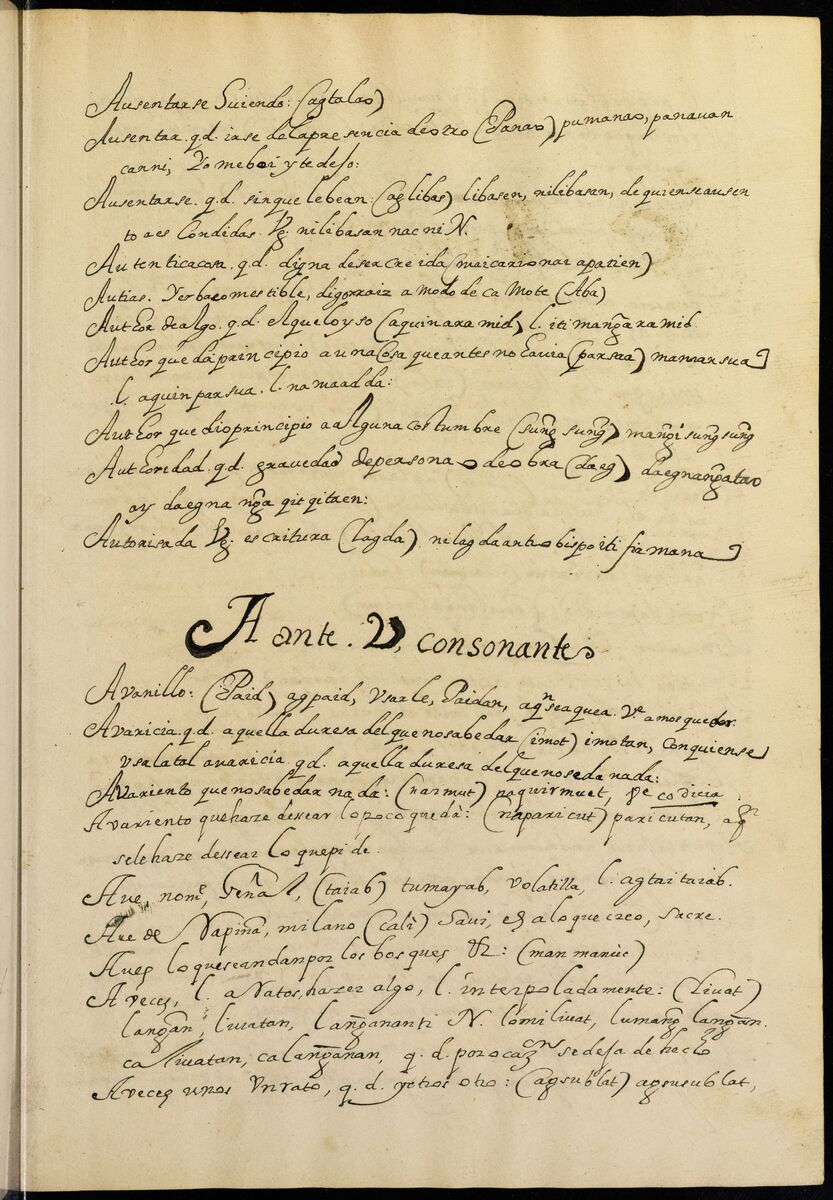 Ausentarse huiendo: (agtalao)
Ausentar. q.d. irse delapresencia deotro (Panao) pumanao, panauan
canni, Yo meboi y te dejo:
Ausentarse. q.d. sinque lebean: (aglibas) libasen, nilibasan, de quiense ausen
to a escondidas. Vg. nilibasan nac ni N.
Autentica cosa. q.d. digna deser creida (maicari onai apatien)
Autias. Yerba comestible, digo rraiz a modo de camote (Aba)
Author de algo. q.d. Aquel oyso (aquinaramid) l. iti mangaramid
Author que da principio a una cosa que antes no hauia (parsua) mamarsua
l. aquin parsua. l. namaadda:
Author que dio principio a alguna costumbre (sung̃ sung̃) mang̃isung̃sung̃
Authoridad. q.d. gravedad depersona o deobra (daeg) daegnang̃atao
ay daegna ng̃a qitqitaen:
Autorisada Vg. escritura (lagda) nilagdaanti obispo iti firmana
A ante. V, consonante
Avanillo: (Paid) agpaid, vsarle, Paidan, aqn seaquea. Ve. amosqueador
Avaricia q.d. aquella duresa del que no sabe dar (imot) imotan, Conquiense
vsa la tal avaricia qd. aquella duresa del que no se da nada:
Avariento que no sabe dar nada: (naimut) naquirmuet, ve codicia
Avariento que haze desear lo poco que dà: (napari cut) paricutan, aqn
sele haze dessear lo que pide.
Aue, nome, general, (taiab) tumayab, volatilla, l. agtaitaiab.
Aue de Rapiña, milano (cali) Saui, es alo que creo, sacre.
Aues lo que se andan por los bosques &: (manmanuc)
A veces, l. a Ratos, hazer algo, l. interpoladamente: (liuat)
lang̃an, liuatan, lang̃ananti N. lomiliuat, lumang̃lang̃an.
calliuatan, calang̃anan, q. d. por ocazn se deja de hecho
A veces unos vn rato, q. d. y otros otro: (agsublat) agsusublat,